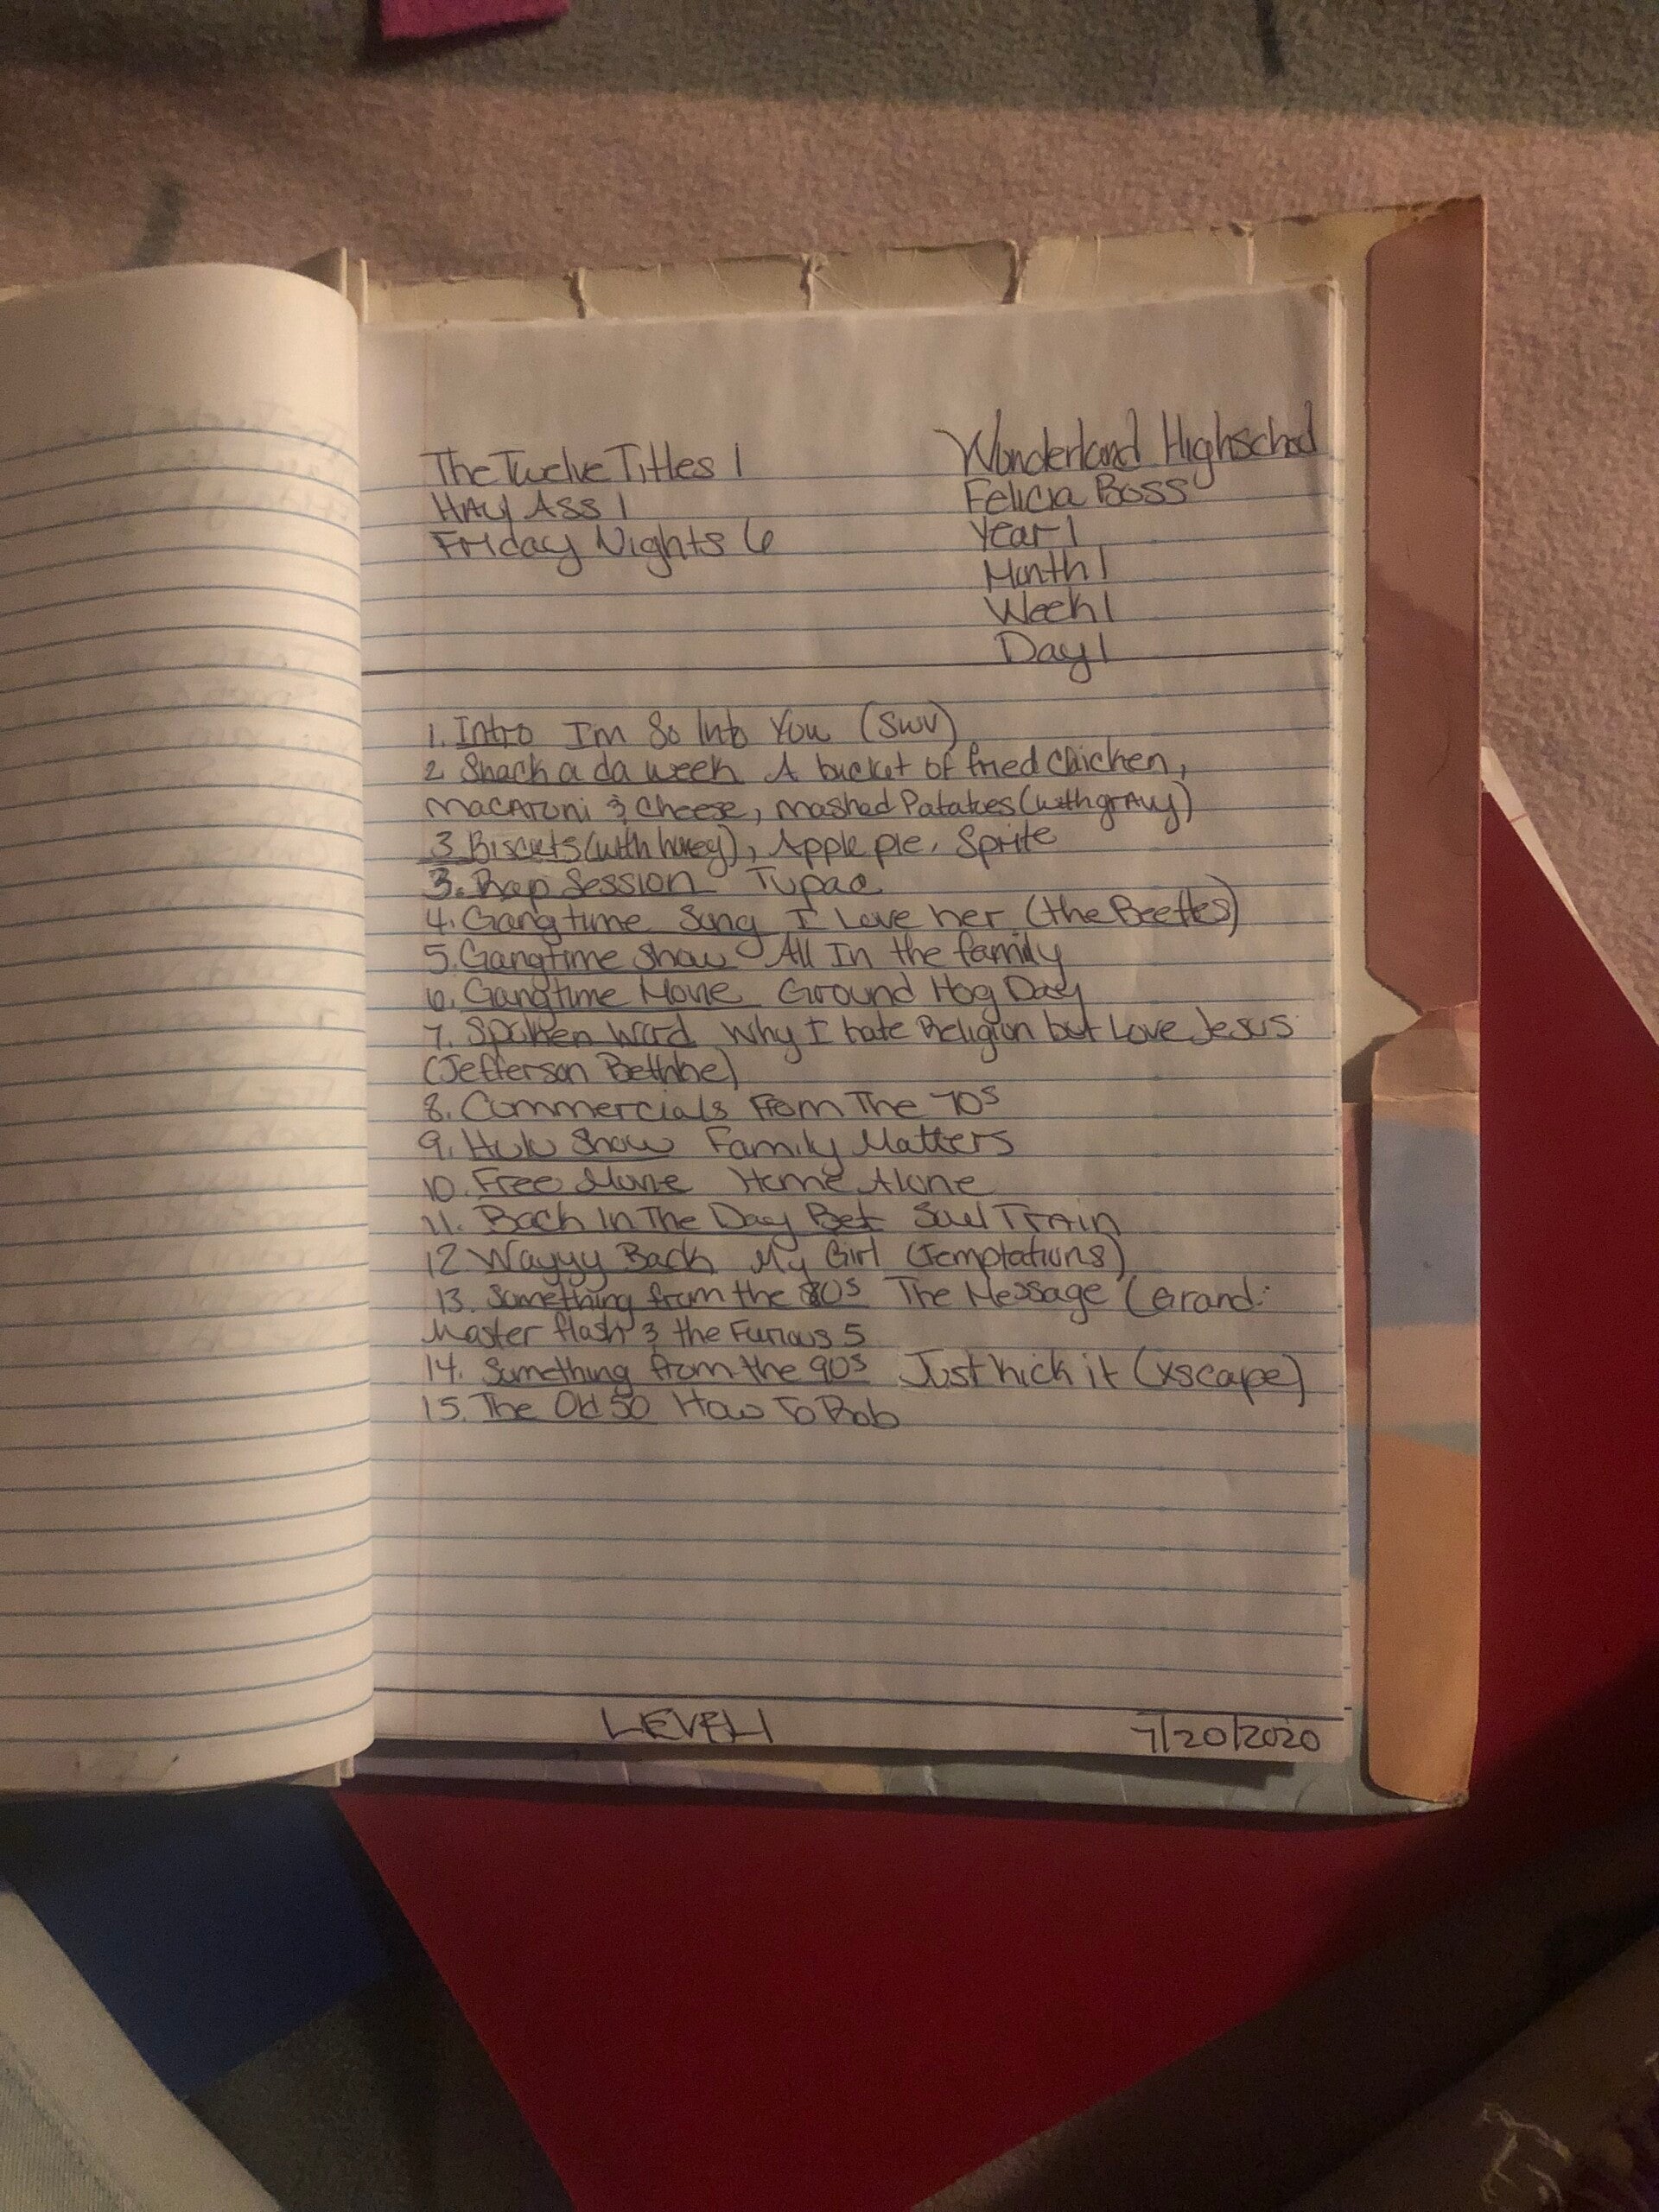 The Twelve Titles 1
HAY Ass 1
Friday Nights 6
Wonderland Highschool
Felicia Boss
Year 1
Month 1
Week 1
Day 1
1. Intro I'm So Into You (SWV)
2 Snack a da week A bucket of fried chicken,
Macaroni & Cheese, Mashed Patatoes (with gravy)
3 Biscuts (with honey), Apple pie, Sprite
3. Rap Session Tupac
4. Gangtime Song I Love her (the Beetles)
5. Gangtime Show All In the family
6. Gangtime Movie Ground Hog Day
7. Spoken Word Why I hate Religion but Love Jesus
(Jefferson Bethke)
8. Commercials From The 70s
9. Hulu Show Family Matters
10. Free Movie Home Alone
11. Back In The Day Bet Soul Train
12 Wayyy Back My Girl (Temptations)
13. Something from the 80s The Message (Grand:
Master flash & the Furious 5
14. Something from the 90s Just kick it (xscape)
15. The Old 50 How To Rob
LEVEL 1
7/20/2020